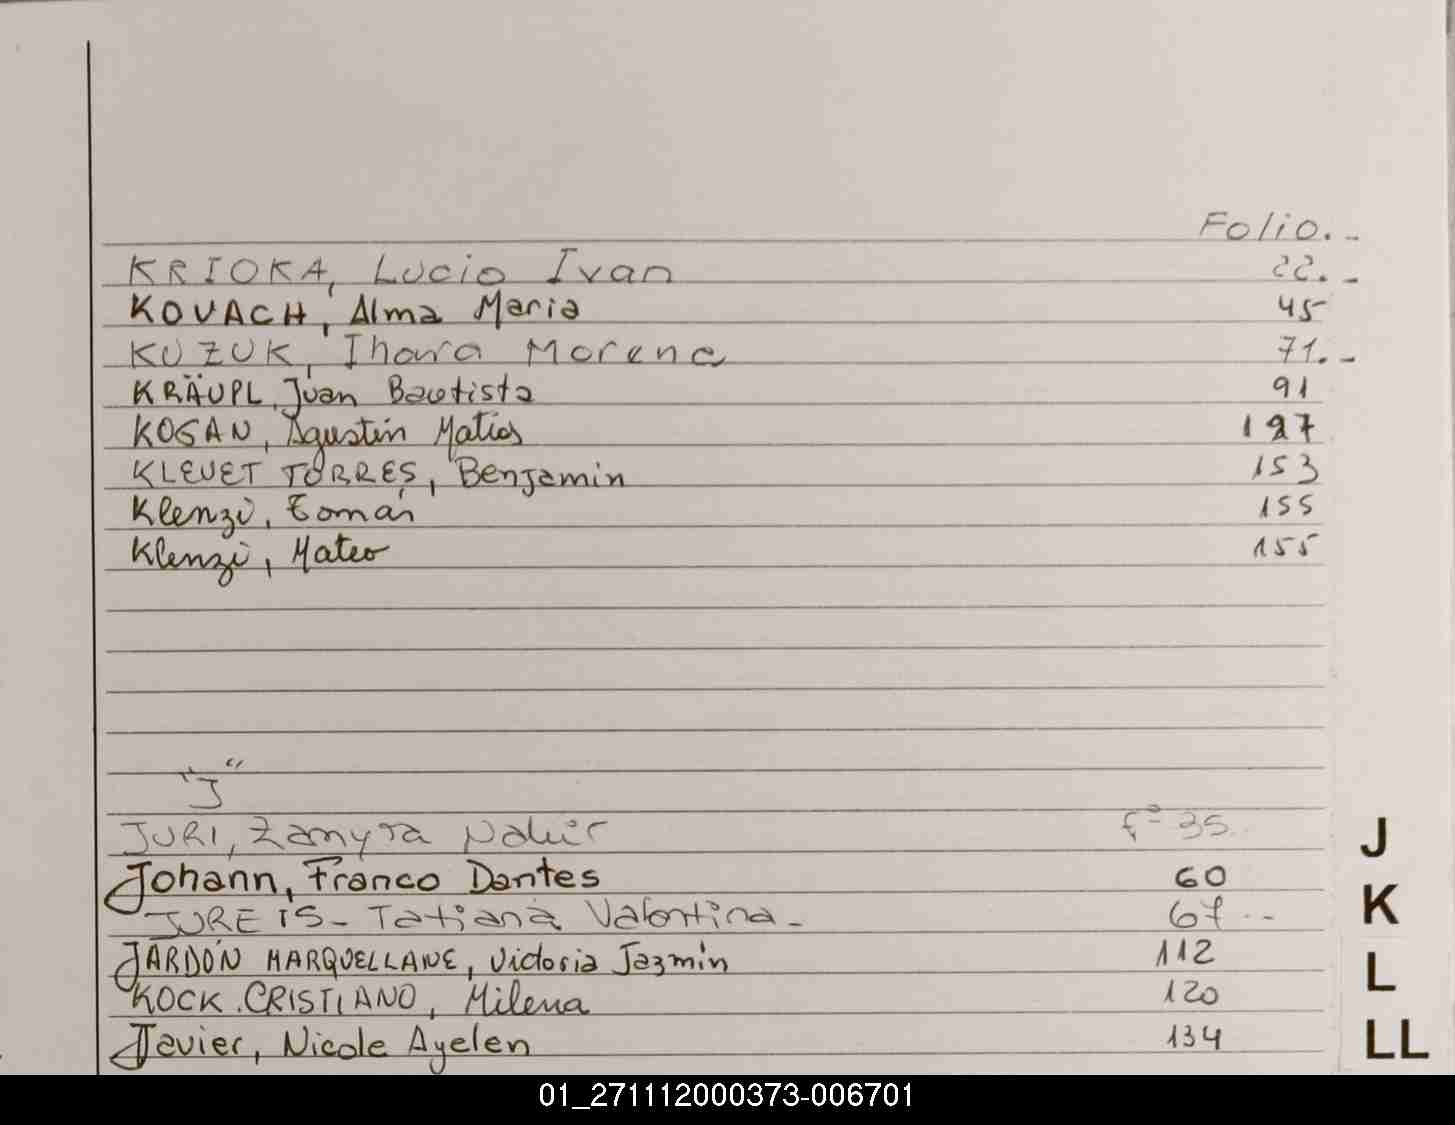 Folio.-
KRIOKA, Lucio Ivan 22.-
KOVACH, Alma Maria 45
KUZUK, Ihara Morena 71.-
KRÄUPL, Juan Bautista 91
KOSAN, Agustín Matías 127
KLEVET TORRES, Benjamin 153
Klenzi, Tomás 155
Klenzi, Mateo 155
"J"
JURI, Zamyra Nahir fº 35
Johann, Franco Dantes 60
JUREIS- Tatiana Valentina- 67--
JARDÓN MARQUELLANE, Victoria Jazmín 112
KOCK.CRISTIANO, Milena 120
Javier, Nicole Ayelen 134
J
K
L
LL
01_271112000373-006701